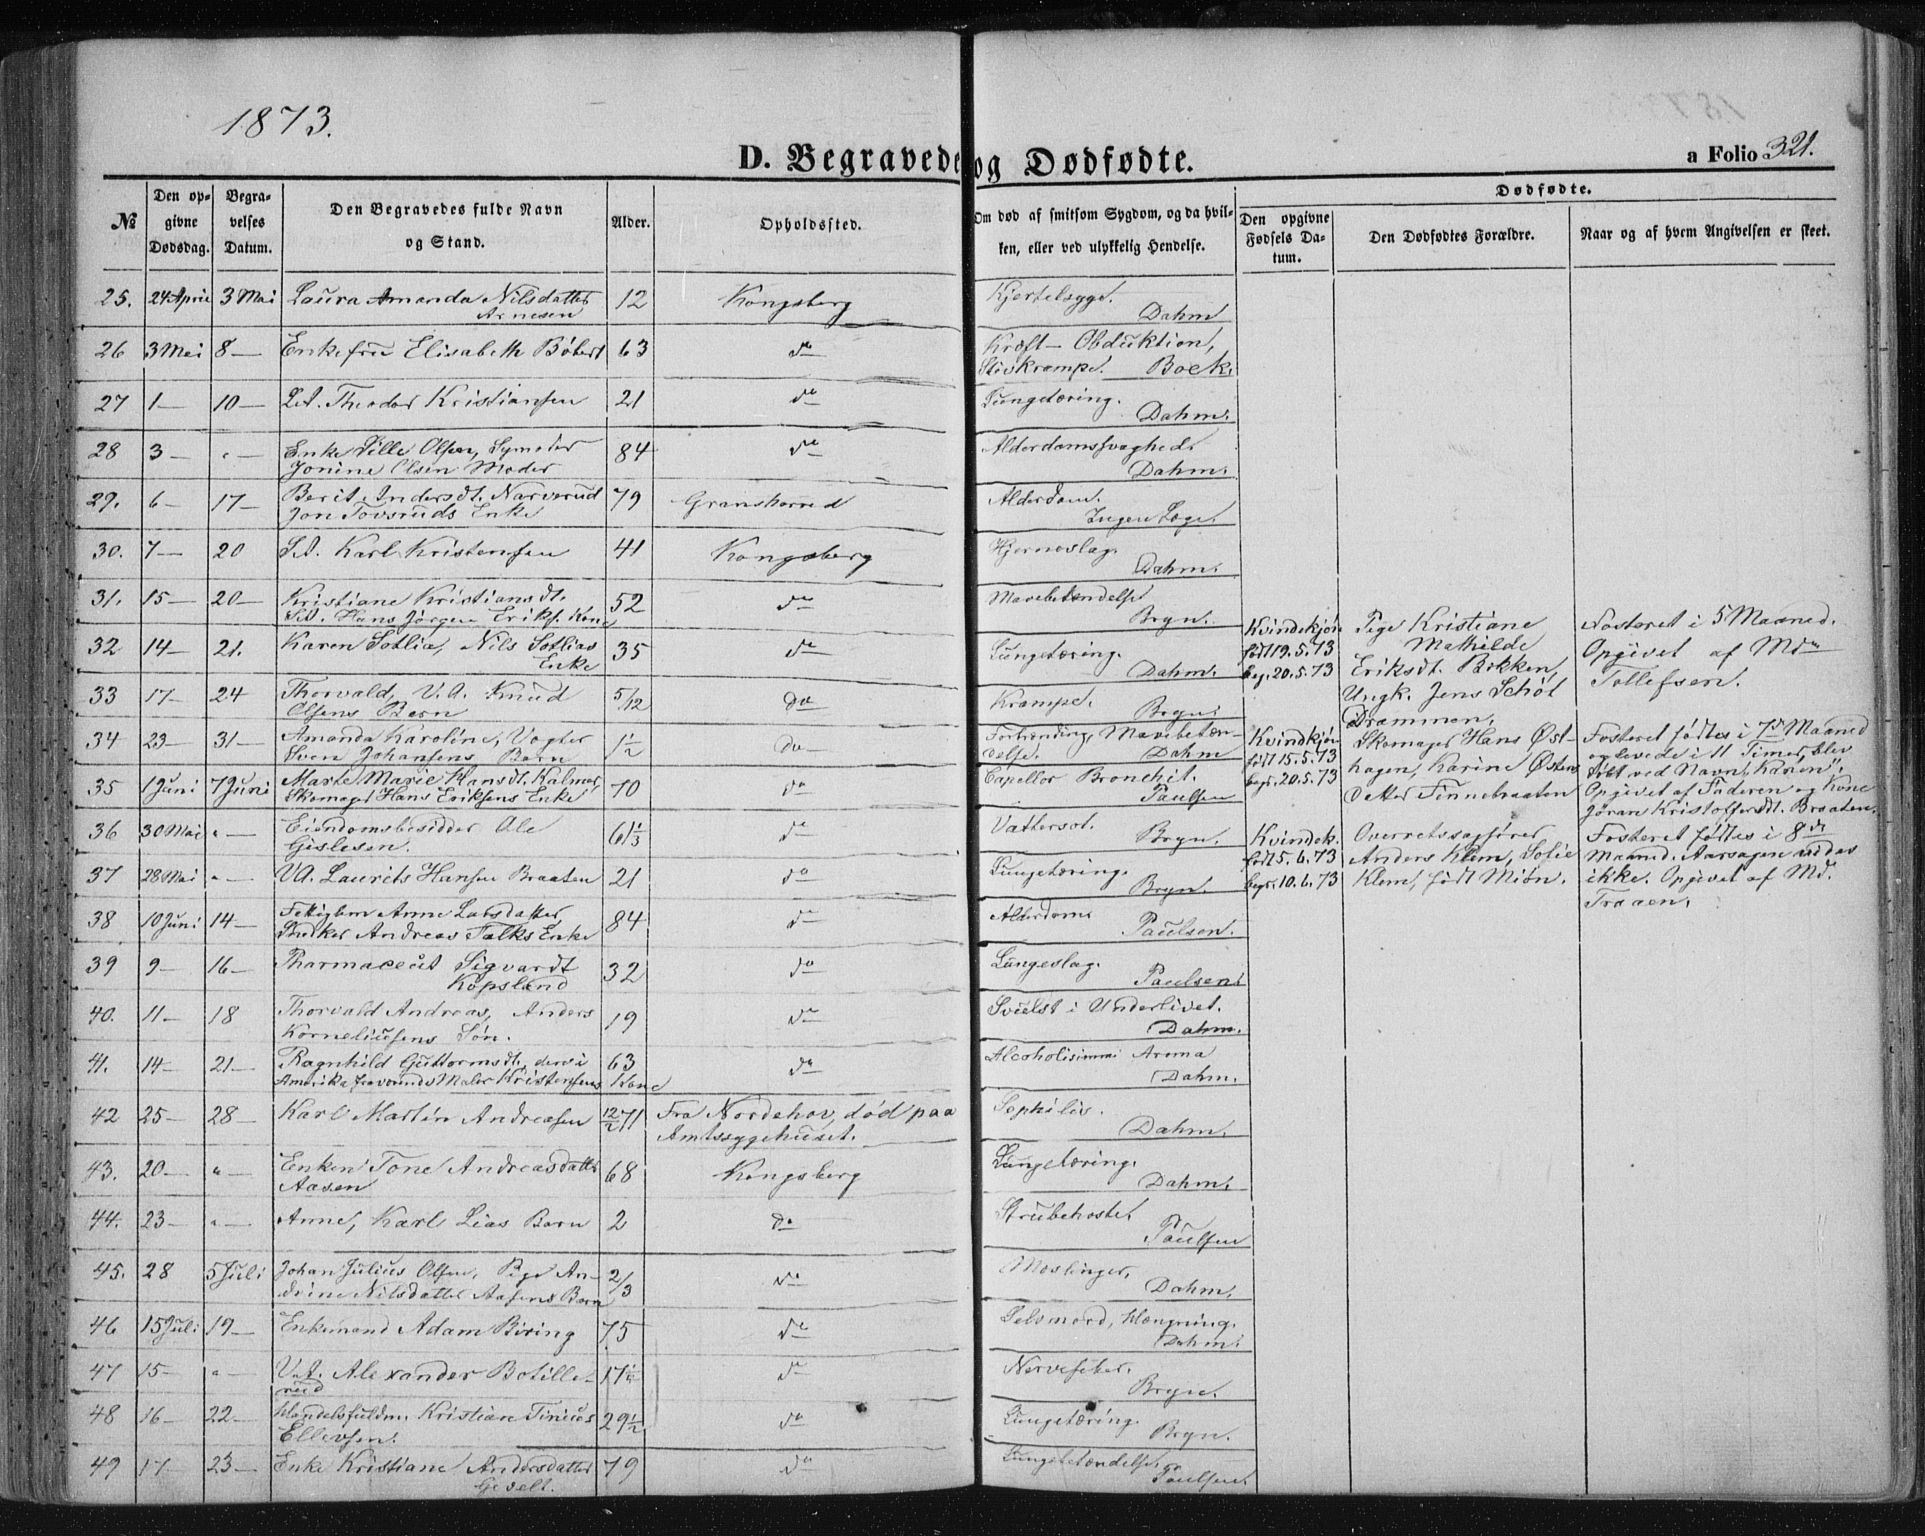 1873.
D. Begravede og Dødfødte.
a Folio 321.
№
Den op-
givne
Dødsdag.
Begra-
velses
Datum.
Den Begravedes fulde Navn
og Stand.
Alder.
Opholdssted.
Om død af smitsom Sygdom, og da hvil-
ken, eller ved ulykkelig Hendelse.
Dødfødte.
Den opgivne
Fødsels Da-
tum.
Den Dødfødtes Forældre.
Naar og af hvem Angivelsen er skeet.
25. 24 April 3 Mai Laura Amanda Nilsdatter 12 Kongsberg Kjertelsyge.
Arnesen Dahm
26 3 Mai 8 — Enkefru Elisabeth Bøbert 63 do Kræft - Obduktion,
Stivkrampe. Boek.
27 1 — 10 — Theodor Kristiansen 21 do Lungetæring.
Dahm.
28 3 — " — Enke Sille Olsen, 84 do Alderdomssvaghed.
Jonine Olsen Moder Dahm.
29. 6 — 17 — Berit Andersdt. Narverud 79 Granshered Alderdom.
Jon Tovsruds Enke Ingen Læge.
30. 7 — 20 Karl Kristensen 41 Kongsberg Hjerneslag.
Dahm.
31. 15 — 20 — Kristiane Kristiansdt. 52 do Mavebetændelse
Hans Jörgen Eriks. Kone Bryn.
32 14 — 21. Karen Sotlia, Nils Sotlias 35 do Lungetæring.
Enke Dahm.
33 17 — 24 Thorvald, V.A. Knud 5/12 do Krampe.
Olsens Barn Bryn.
34 23 — 31 — Amanda Karoline, Vogter 1½ do Mavebetæn-
Sven Johansens Barn delse. Dahm
35 1 Juni 7 Juni Marte Marie Hansdt. Kalmoe, 70 do Capellær Bronchit.
Skomager Hans Eriksens Enke Paulsen
36 30 Mai " — Eiendomsbesidder Ole 61⅓ do Vattersot.
Gislesen. Bryn.
37 28 Mai " — V.A. Laurits Hansen Braaten 21 do Lungetæring.
Bryn.
38 10 Juni 14 — Fattiglem Anne Larsdatter 84 do Alderdom.
Andreas Falks Enke Paulsen.
39 9 — 16 — Pharmaceut Sigvardt 32 do Lungeslag.
Kopsland Paulsen.
40. 11 — 18 Thorvald Andreas, Anders 19 do Svulst i Underlivet.
Korneliusens Søn. Dahm.
41. 14 — 21 — Ragnhild Guttormsdt, den i 63 do
Amerika fraværende Maler Kristensens Kone Dahm.
42 25 — 28 — Karl Martin Andreasen Fra Norderhov, død paa
Amtssygehuset. Dahm.
43. 20 — " Enken Tone Andreasdatter 68 Kongsberg Lungetæring.
Aasen Dahm.
44. 23 — " — Anne, Karl Lias Barn 2 do Strubehoste.
Paulsen
45. 28 5 Juli Johan Julius Olsen, Pige An- 2/3 do Mæslinger.
drine Nilsdatter Aasens Barn Dahm.
46 15 Juli 19 — Enkemand Adam Biring 75 do Selvmord, Hængning.
Dahm.
47 15 — " — V.A. Alexander Botille- do Nervefeber.
rud Bryn.
48 16 — 22 — Handelsfuldm. Kristian Tinius 29½ do Lungetæring.
Ellevsen. Bryn.
49 17 — 23 — Enke Kristiane Andersdatter 79 do Lungebetændelse
Gevelt. Paulsen.
Kvindekjøn
født 19.5.73
beg. 20.5.73
Pige Kristiane
Mathilde
Eriksdt. Bekken,
Ungk. Jens Schöt
Drammen.
Fosteret i 5 Maaned.
Opgivet af Mdm
Tollefsen.
Kvindkjøn
født 15.5.73
begr. 20.5.73
Skomager Hans Øst-
hagen, Karine Østens
datter Finnebraaten
Fosteret fødtes i 7de Maaned
og levede i 11 Timer, blev
døbt ved Navn "Karen".
Opgivet af Faderen og Kone
Jøran Kristoffersdt. Braaten.
Kvindek.
født 5.6.73
begr. 10.6.73
Overretssagfører
Anders Klem, Sofie
Klem, født Miøn.
Fosteret fødtes i 8de
Maaned. Aarsagen vides
ikke. Opgivet af Md.
Traaen.